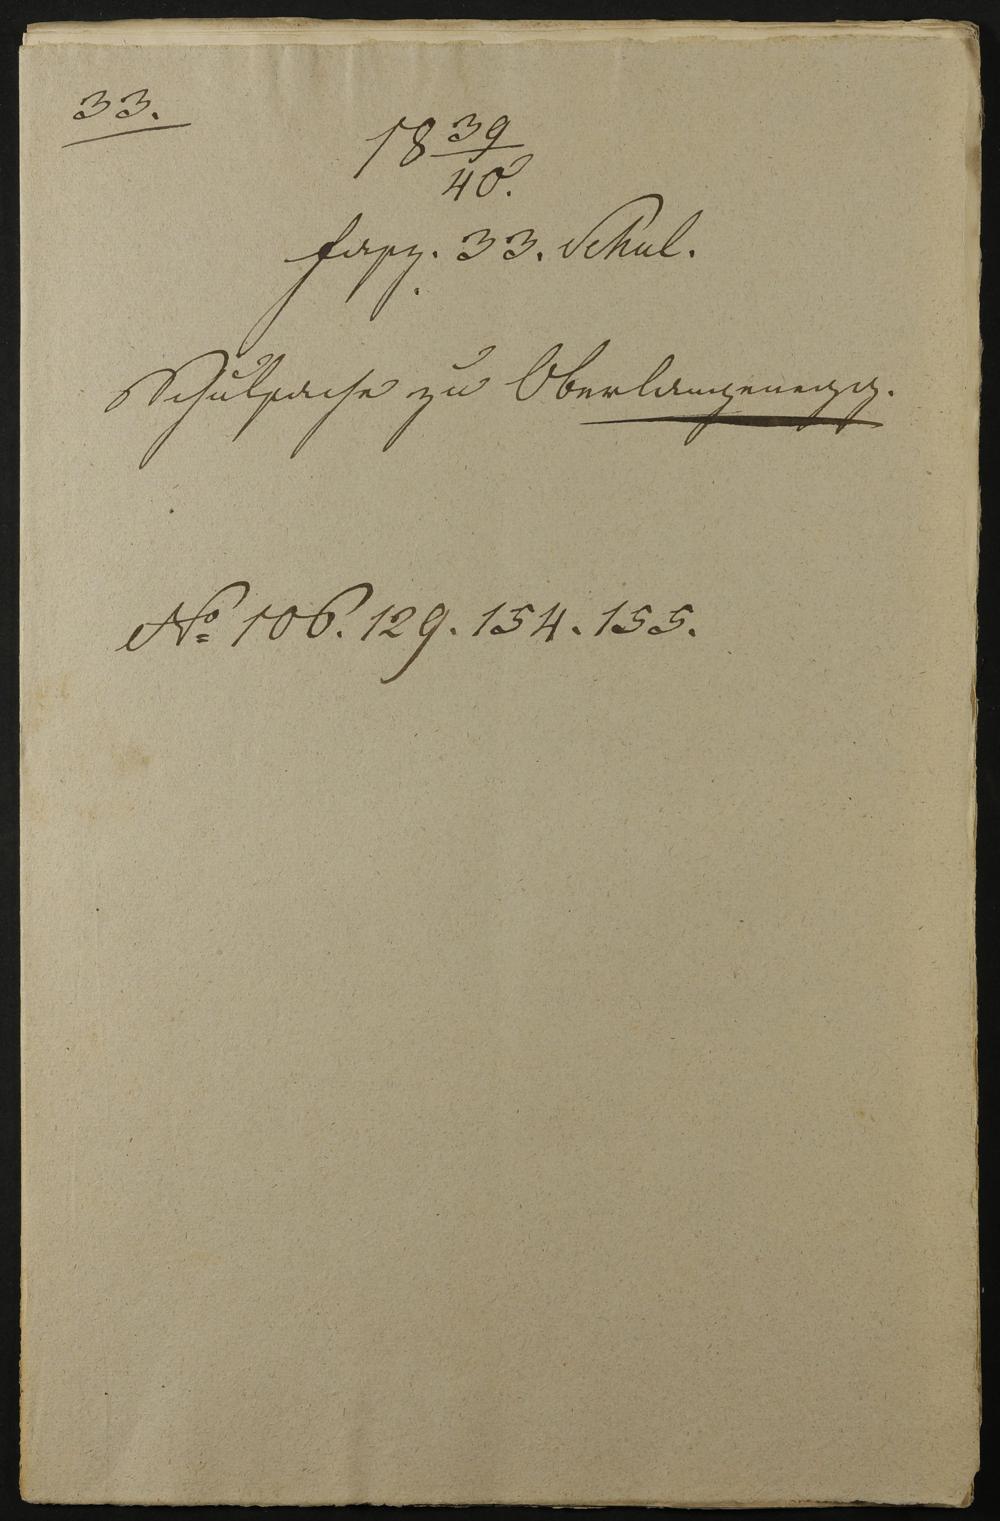 33.
18 39/40.
Fasz. 33. Schul.
Schulsache zu Oberlangenegg.
No. 106. 129. 154. 155.